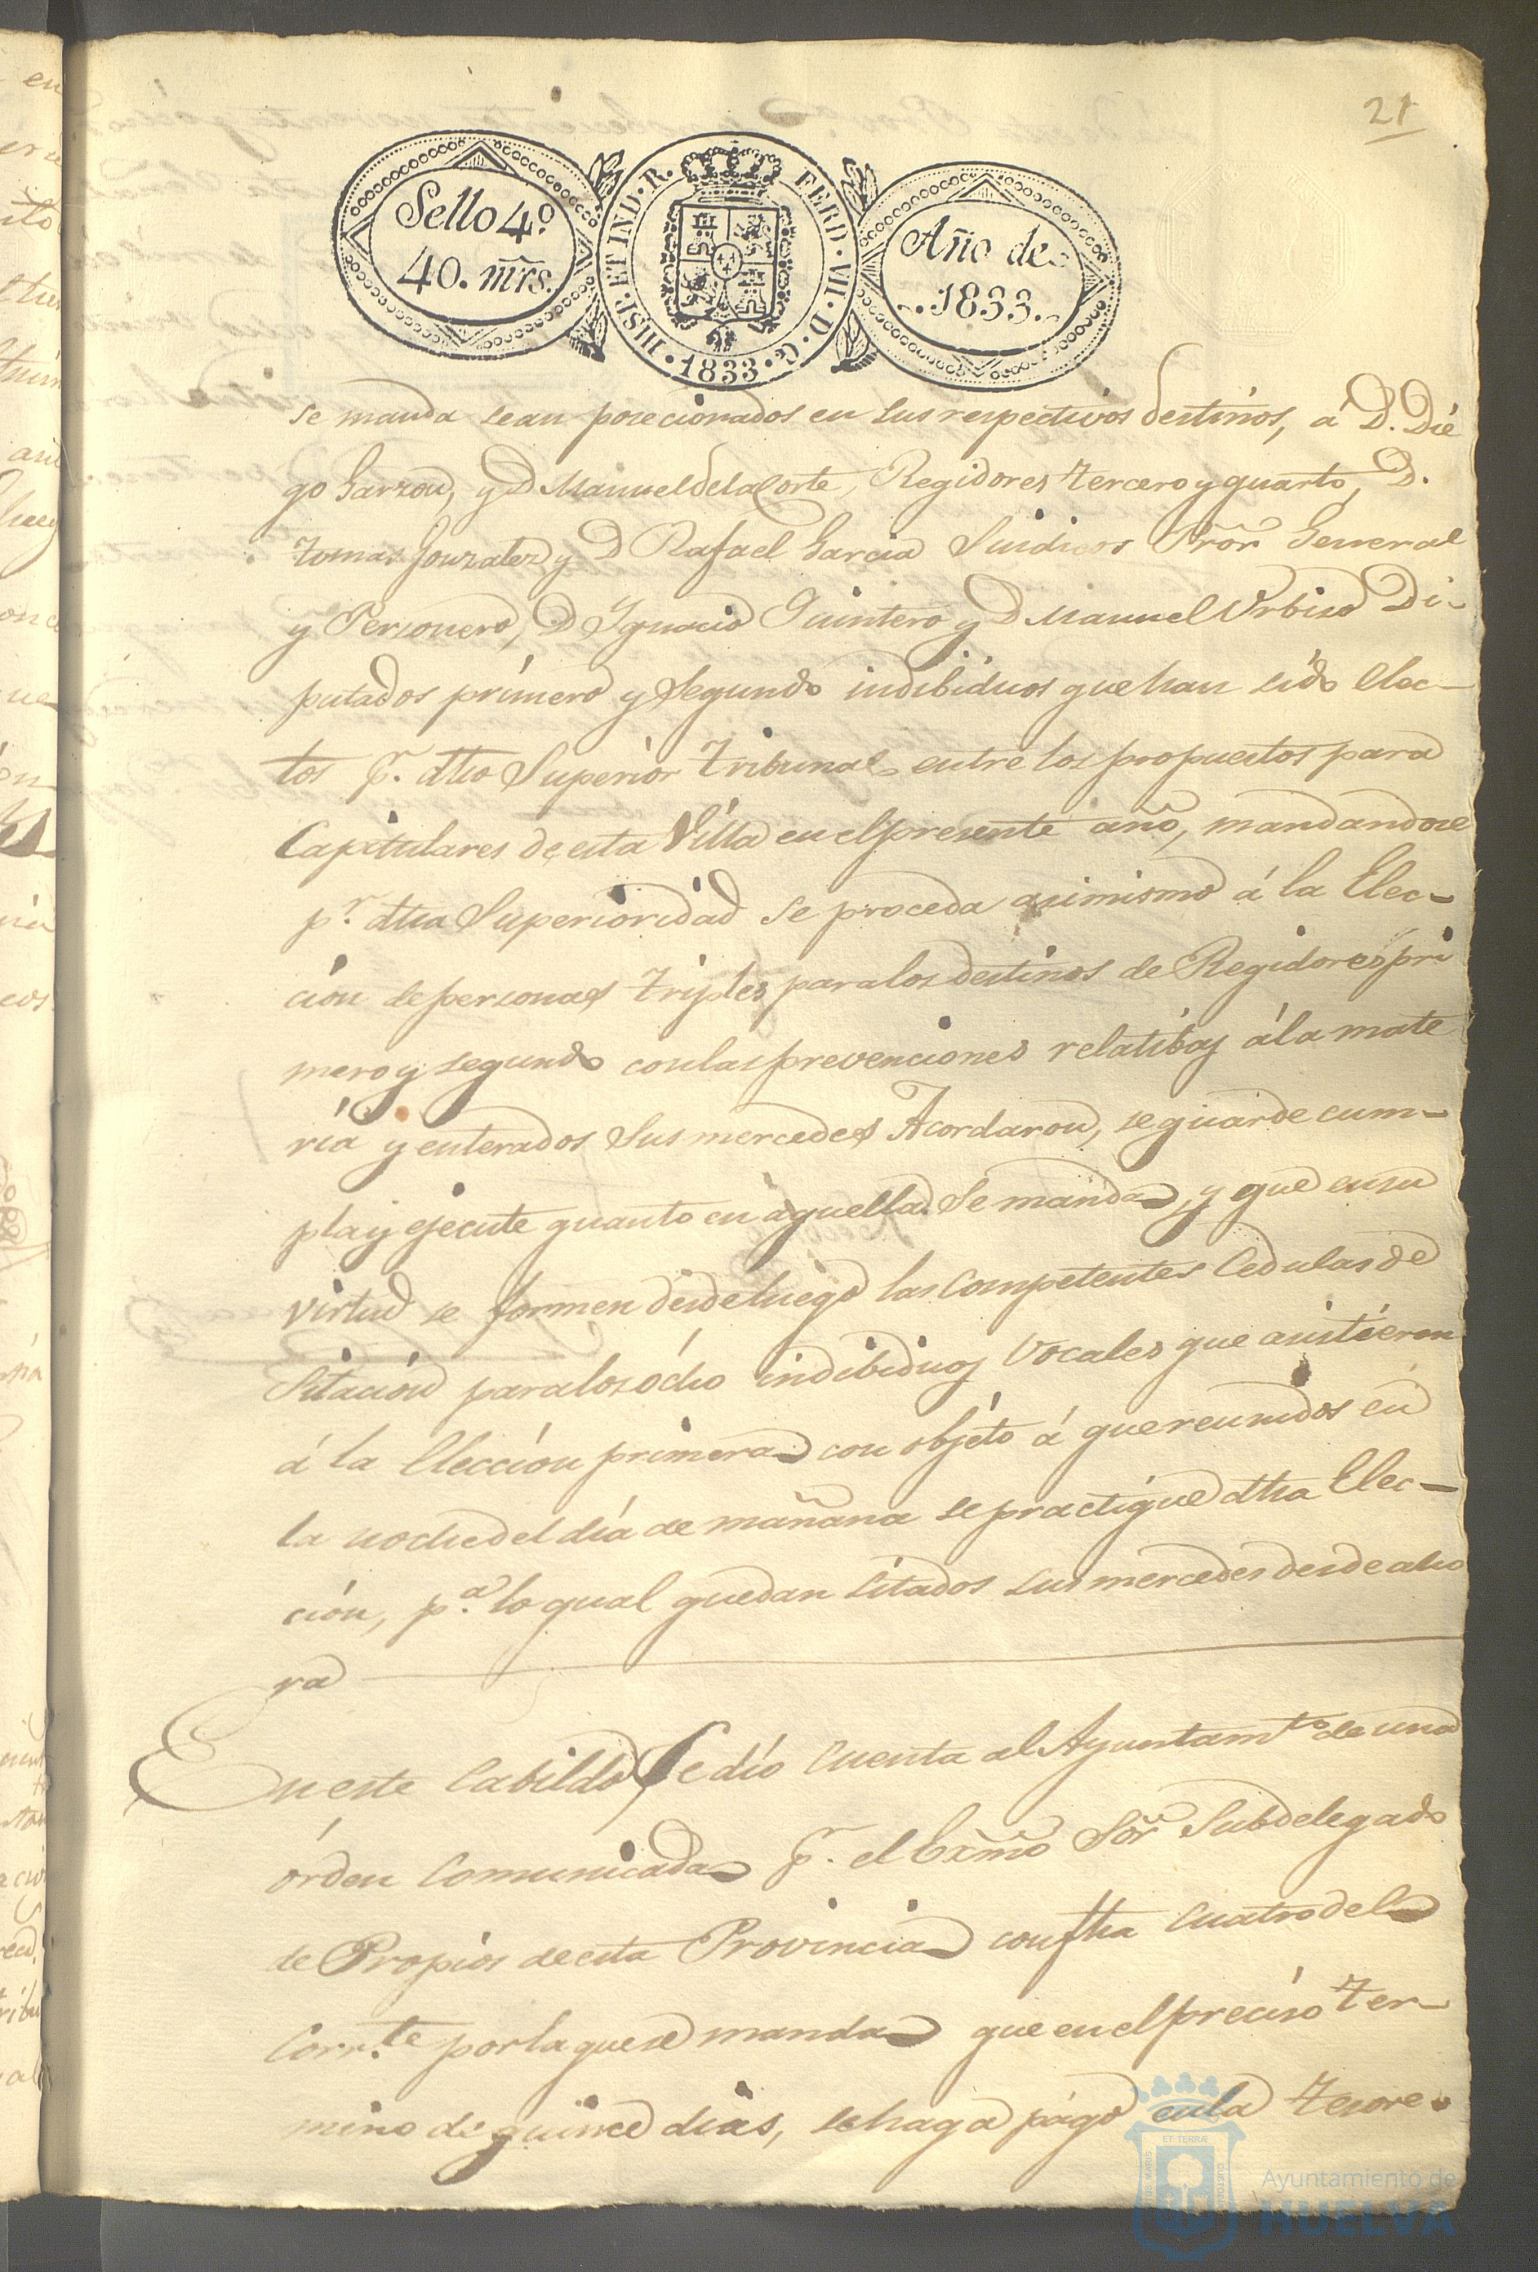 21
Sello 4º
40. mrs.
HISP. ET IND. R. FERD. VII. D. G. 1833.
Año de
1833.
se manda sean posecionados en sus respectivos destinos, á D. Dié
go Garzon, y D Manuel de la Corte, Regidores tercero y quarto, D.
Tomas Gonzalez y D Rafael Garcia Sindicos Pror General
y Personero, D Ygnacio Quintero y D Manuel Urbiso Di-
putados primero y Segundo indibiduos que han sido elec-
tos pr. dho Superior tribunal entre los propuestos para
Capitulares de esta Villa en el presente año, mandandose
pr. dha Superioridad se proceda asimismo á la Elec-
ción de personas triples para los destinos de Regidores pri
mero y segundo con las prevenciones relatibas á la mate
ria y enterados Sus mercedes Acordaron, se guarde cum-
pla y ejecute quanto en aquella se manda, y que en su
virtud se formen desde luego las competentes Cedulas de
Sitación para los ócho indibiduos Vocales que asistieron
á la Elección primera con objéto á que reunidos en
la noche del día de mañana se practique dha Elec-
ción, pa. lo qual quedan Sitados sus mercedes desde aho
ra
En este Cabildo Se dío Cuenta al Ayuntamto de una
órden Comunicada pr. el Exmo Sor Subdelegado
de Propios de esta Provincia con fha Cuatro del
Corr.te por la que se manda que en el preciso ter-
mino de quince dias, se haga págo en la tesore-
Ayuntamiento de
HUELVA